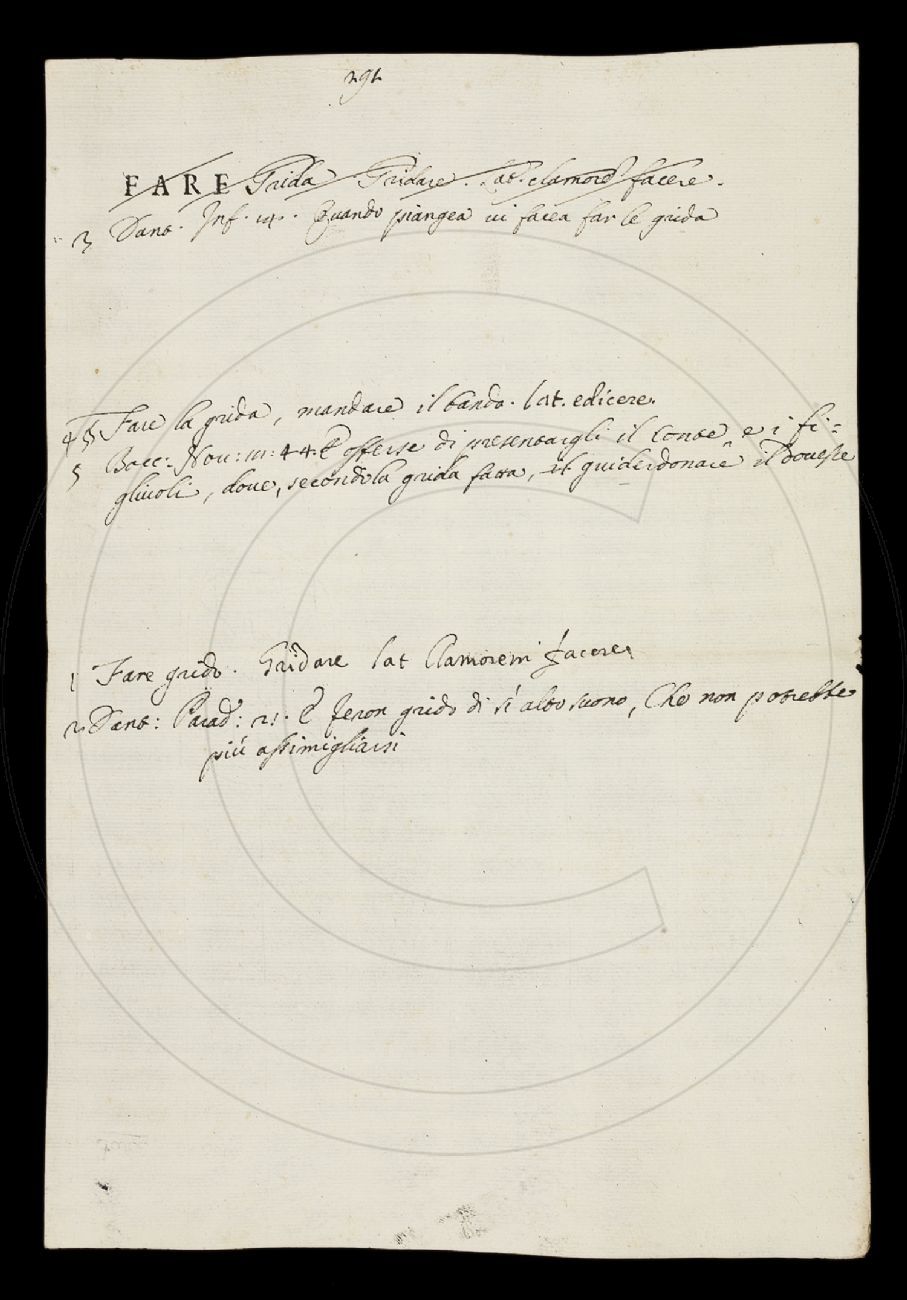 291
FARE Grida Gridare. Lat. clamorẽ facere.
3 Dant. Inf. 14. Quando piangea vi facea far le grida
4 Fare la grida, mandare il bando. lat. edicere.
5 Bocc. Nou: 18: 44. E offerse di presentargli il Conte e i fi=
gliuoli, doue, secondo la grida fatta, guiderdonare il douesse
1 Fare grido. Gridare lat Clamorem facere,
2 Dant: Parad: 21. E feron grido di sí alto suono, Che non potrebbe
piú assimigliarsi